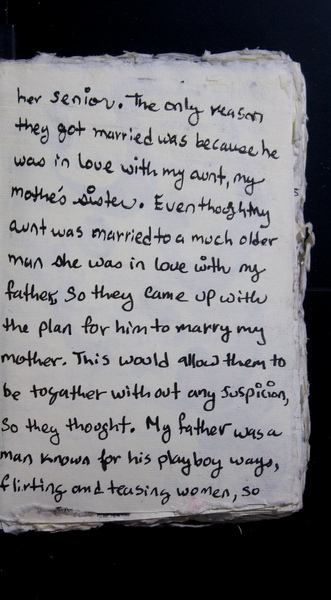 her senior. The only reason
they got married was because he
was in love with my aunt, my
mothe's sister. Eventhoughmy
aunt was married to a much older
man she was in love with my
father, So they came up with
the plan for him to marry my
mother. This would allow them to
be togather without any suspicion,
So they thought. My father was a
man known for his playboy ways,
flirting and teasing women, so